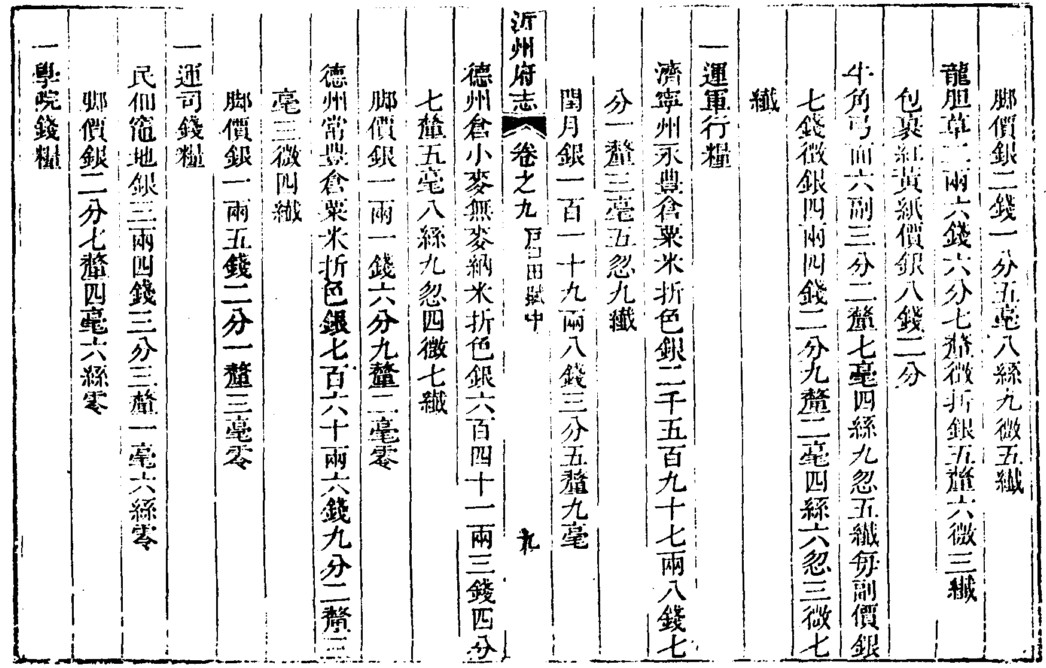 腳價銀二錢一分五毫八絲九微五纖
龍胆草二兩六錢六分七釐徵折銀五釐六微三纖
包裹紅黃紙價銀八錢二分
牛角弓面六副三分二釐七毫四絲九忽五纖每副價銀
七錢徵銀四兩四錢二分九釐二毫四絲六忽三微七
纖
一運軍行糧
濟寧州永豊倉粟米折色銀二千五百九十七兩八錢七
分一釐三毫五忽九纖
閏月銀一百一十九兩八錢三分五釐九毫
沂州府志 卷之九 戸口田賦中 九
德州倉小麥無麥納米折色銀六百四十一兩三錢四分
七釐五毫八絲九忽四微七纖
腳價銀一兩一錢六分九釐二毫零
德州常豊倉粟米折色銀七百六十兩六錢九分二釐三
毫三微四纖
腳價銀一兩五錢二分一釐三毫零
一運司錢糧
民佃竈地銀三兩四錢三分三釐一毫六絲零
腳價銀二分七釐四毫六絲零
一學院錢糧